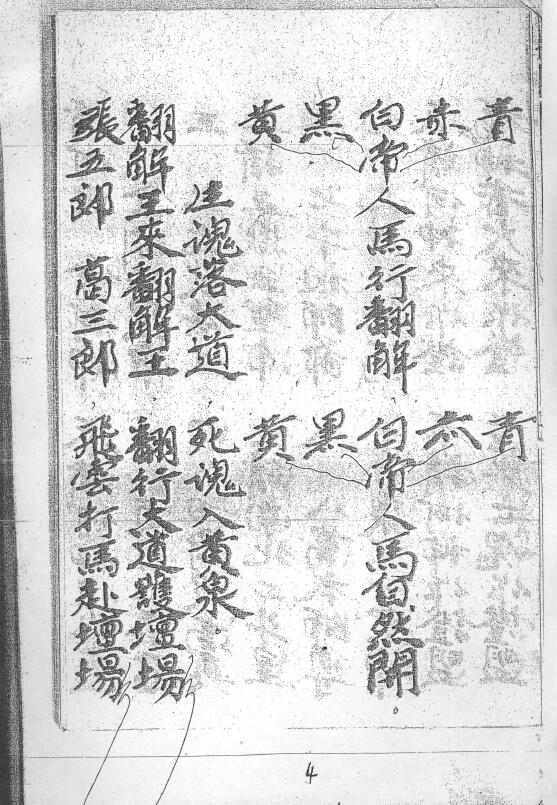 青 赤 白 黑 黃 帝人馬行翻解，青 赤 白 黑 黃 帝人馬自然開。
生魂落大道，死魂入黃泉。
翻解王來翻解王，翻行大道護壇場
張五郎 葛三郎，飛雲打馬赴壇場
4